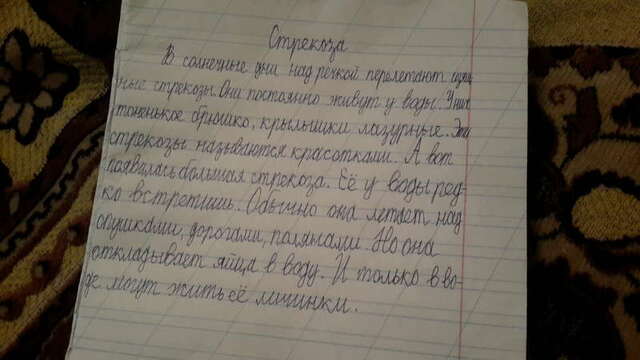 Стрекоза
В солнечные дни над речкой перелетают изящ
ные стрекозы. Они постоянно живут у воды. У них
тоненькое брюшко, крылышки лазурные. Эти
стрекозы называются красотками. А вот
появилась большая стрекоза. Её у воды ред-
ко встретишь. Обычно она летает над
опушками, дорогами, полянами. Но она
откладывает яйца в воду. И только в во-
де могут жить её личинки.